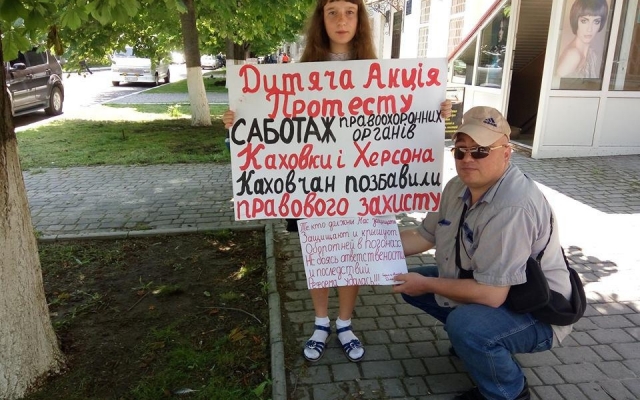 Дитяча Акція
Протесту
САБОТАЖ правоохоронних
органів
Каховки і Херсона
Каховчан позбавили
правового захисту
Те кто должны нас защищать
Защищают и крышуют
Оборотней в погонах
Не боясь ответственности
и последствий
Реформа удалась!!!